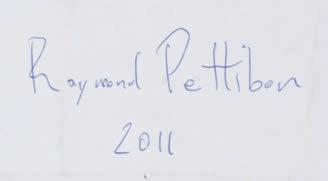 Raymond Pettibon
2011